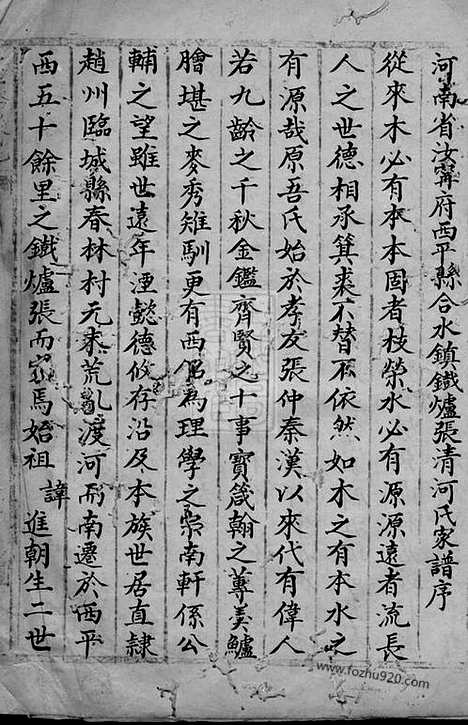 河南省汝寧府西平縣合水鎮鐵爐張清河氏家譜序
從來木必有本本固者枝榮水必有源源遠者流長
人之世德相承箕裘不替不依然如木之有本水之
有源哉原吾氏始於孝友張仲秦漢以來代有偉人
若九齡之千秋金鑑齊賢之十事寶箴翰之蓴羹鱸
膾堪之麥秀雉馴更有西銘為理學之宗南軒係公
輔之望雖世遠年湮懿德攸存沿及本族世居直隸
趙州臨城縣春林村元末荒乱渡河而南遷於西平
西五十餘里之鐵爐張而家焉始祖 諱 進朝生二世
www.fozhu920.com